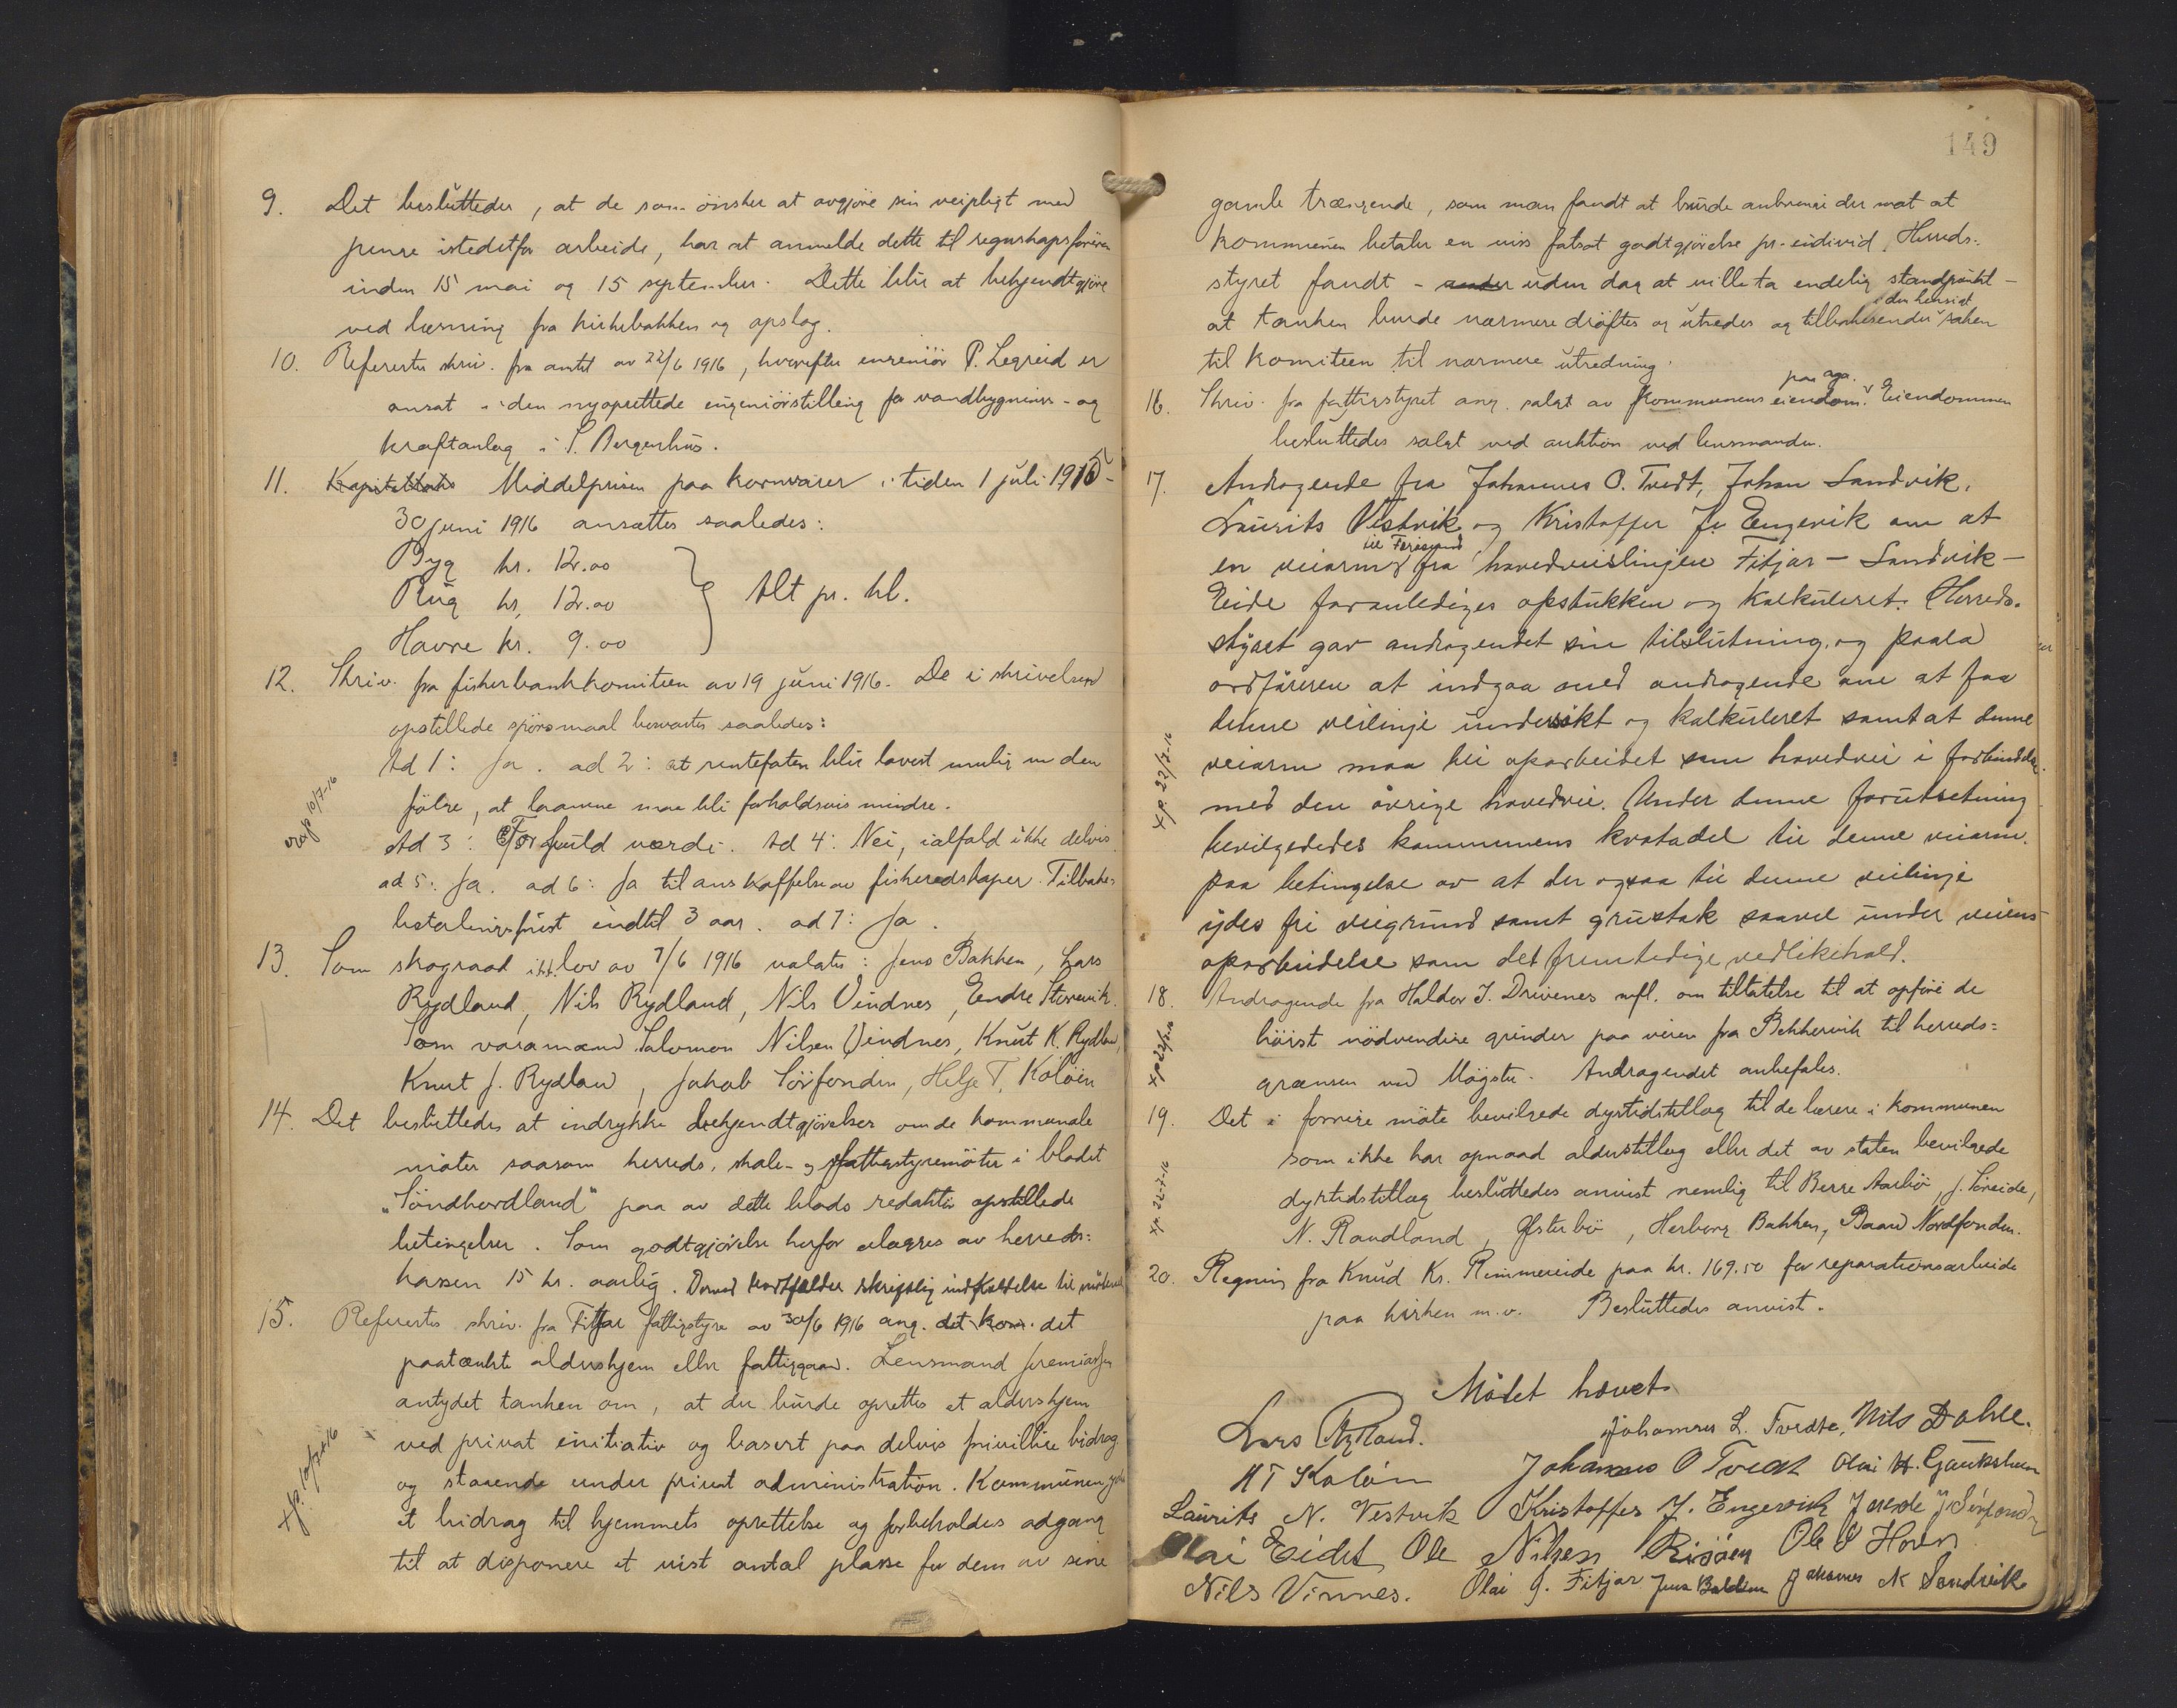 9. Det besluttedes, at de som ønsker at avgjøre sin veipligt med
penge istedetfor arbeide, har at anmelde dette til regnskapsføreren
inden 15 mai og 15 september. Dette blir at bekjendtgjøre
ved læsning fra kirkebakken og opslag.
10. Refereertes skriv. fra amtet av 22/6 1916, hvorefter ingeniør P. Legreid er
ansat i den nyoprettede ingeniørstilling for vandbygnings- og
kraftanlæg i S. Bergenhus.
11. Kapitaltakst Middelprisen paa kornvarer i tiden 1 juli 1915 -
30 juni 1916 ansættes saaledes:
Byg kr. 12.00
Rug kr. 12.00
Havre kr. 9.00
Alt pr. hl.
12. Skriv. fra fiskerbankkomiteen av 19 juni 1916. De i skrivelsen
opstillede spørsmaal besvartes saaledes:
Ad 1: Ja. ad 2: at rentefoten blir lavest mulig om den
følge, at laanene maa bli forholdsvis mindre.
exp 10/7-16
Ad 3: For fuld værdi. Ad 4: Nei, ialfald ikke delvis
ad 5: Ja. ad 6: Ja til anskaffelse av fiskeredskaper. Tilbake-
betalingsfrist indtil 3 aar. ad 7: Ja.
13. Som skograad iht. lov av 7/6 1916 valgtes: Jens Bakken, Lars
Rydland, Nils Rydland, Nils Vindnes, Endre Storevik.
Som varamænd Salomon Nilsen Vindnes, Knut K. Rydland,
Knut J. Rydland, Jakob Sörfonden, Helje T. Koløen
14. Det besluttedes at indrykke bekjendtgjørelser om de kommunale
møter saasom herreds, skole- og fattigstyremøter i bladet
"Søndhordland" paa av dette blads redaktør opstillede
betingelser. Som godtgjørelse herfor utlægges av herreds=
kassen 15 kr. aarlig. Derved bortfalder skriftlig indkaldelse til møterne
15. Refereertes skriv. fra Fitjar fattigstyre av 30/6 1916 ang. det kom. det
paatænkte aldershjem eller fattiggaard. Lensmand Jeremiassen
antydet tanken om, at der burde oprettes et aldershjem
ved privat initiativ og basert paa delvis frivillige bidrag
og staaende under privat administration. Kommunen yder
xp. 10/7-16
et bidrag til hjemmets oprettelse og forbeholdes adgang
til at disponere et vist antal plasse for dem av sine
149
gamle trængende, som man fandt at burde anbringe der mot at
kommunen betaler en viss fastsat godtgjørelse pr. individ. Herreds-
styret fandt - under uden dag at ville ta endelig standpunkt -
at tanken burde nærmere drøftes og utredes og tilbakesender i den hensigt saken
til komiteen til nærmere utredning.
16. Skriv. fra fattigstyret ang. salg av kommunens eiendom paa Aga. Eiendommen
besluttedes solgt ved auktion ved lensmanden.
17. Andragende fra Johannes O. Tvedt, Johan Sandvik,
Laurits Vestvik og Kristoffer J. Engevik om at
en veiarm til Færøysund fra hovedveislinjen Fitjar - Sandvik -
Eide foranlediges opstukken og kalkuleret. Herreds-
styret gav andragendet sin tilslutning, og paala
ordføreren at indgaa med andragende om at faa
denne veilinje undersøkt og kalkuleret samt at denne
xp 22/7-16
veiarm maa bli oparbeidet som hovedvei i forbindelse
med den øvrige hovedvei. Under denne forutsetning
bevilgedes kommunens kvotadel til denne veiarm.
paa betingelse av at der ogsaa til denne veilinje
ydes fri veigrund samt grustak saavel under veiens
oparbeidelse som det fremtidige vedlikehold.
18. Andragende fra Haldor J. Drivenes mfl. om tillatelse til at opføre de
xp 22/7-16
höist nödvendige grinder paa veien fra Bekkervik til herreds=
grænsen ved Møgster. Andragendet anbefales.
19. Det i forrige møte bevilgede dyrtidstillæg til de lærere i kommunen
som ikke har opnaad alderstillæg eller det av staten bevilgede
xp 22-7-16
dyrtidstillæg besluttedes anvist nemlig til Berge Aarbø, J. Søreide,
N. Raudland, Østerbø, Herborg Bakken, Baard Nordfonden.
20. Regning fra Knud Kr. Rimmereide paa kr. 169.50 for reparationsarbeide
paa kirken m.v. Besluttedes anvist.
Møtet hævet.
Lars Rydland. Johannes L. Tvedte, Nils Dahle.
H T Koløen Johannes O Tvedt Olai H. Gaukshem
Laurits N. Vestvik Kristoffer J. Engevik J Sørfonden
Olai Eidet Ole Nilsen Risøen Ole Hoven
Nils Vinnes. Olai J. Fitjar Jens Bakken Johannes N Sandvik